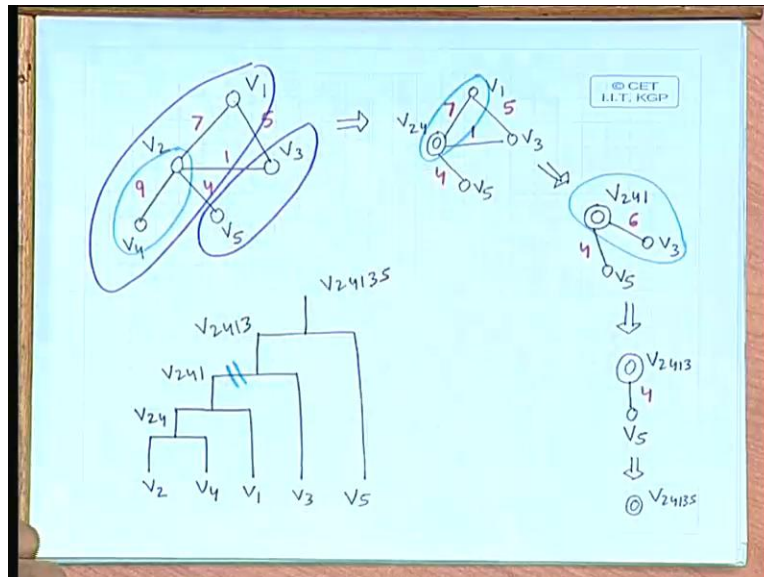 © CET
I.I.T, KGP
V1
7
5
V2
1
V3
9
4
V4
V5
⇒
V1
7
5
V24
1
V3
4
V5
V241
6
V3
4
V5
V2413
4
V5
V24135
V24135
V2413
V241
V24
V2 V4 V1 V3 V5